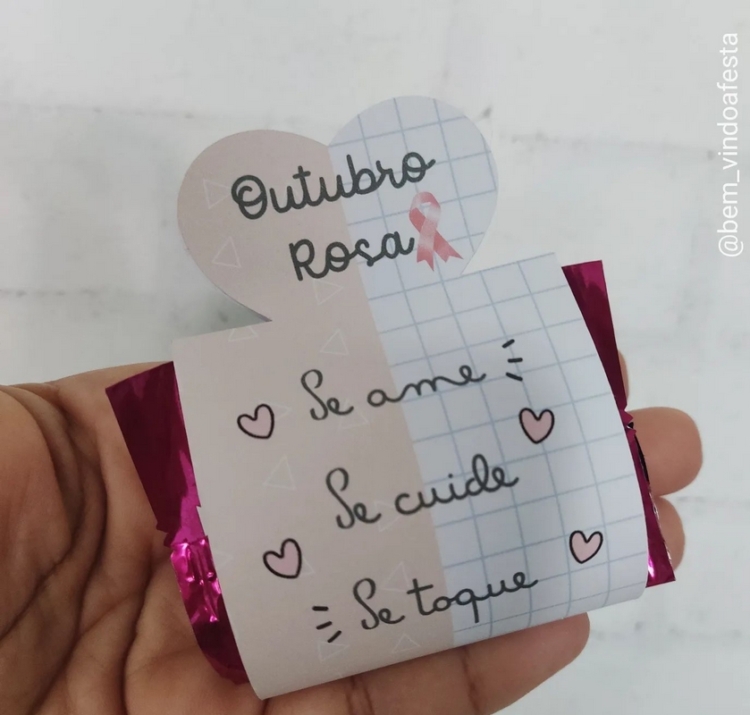 Outubro
Rosa
Se ame
Se cuide
Se toque
@bem_vindoafesta